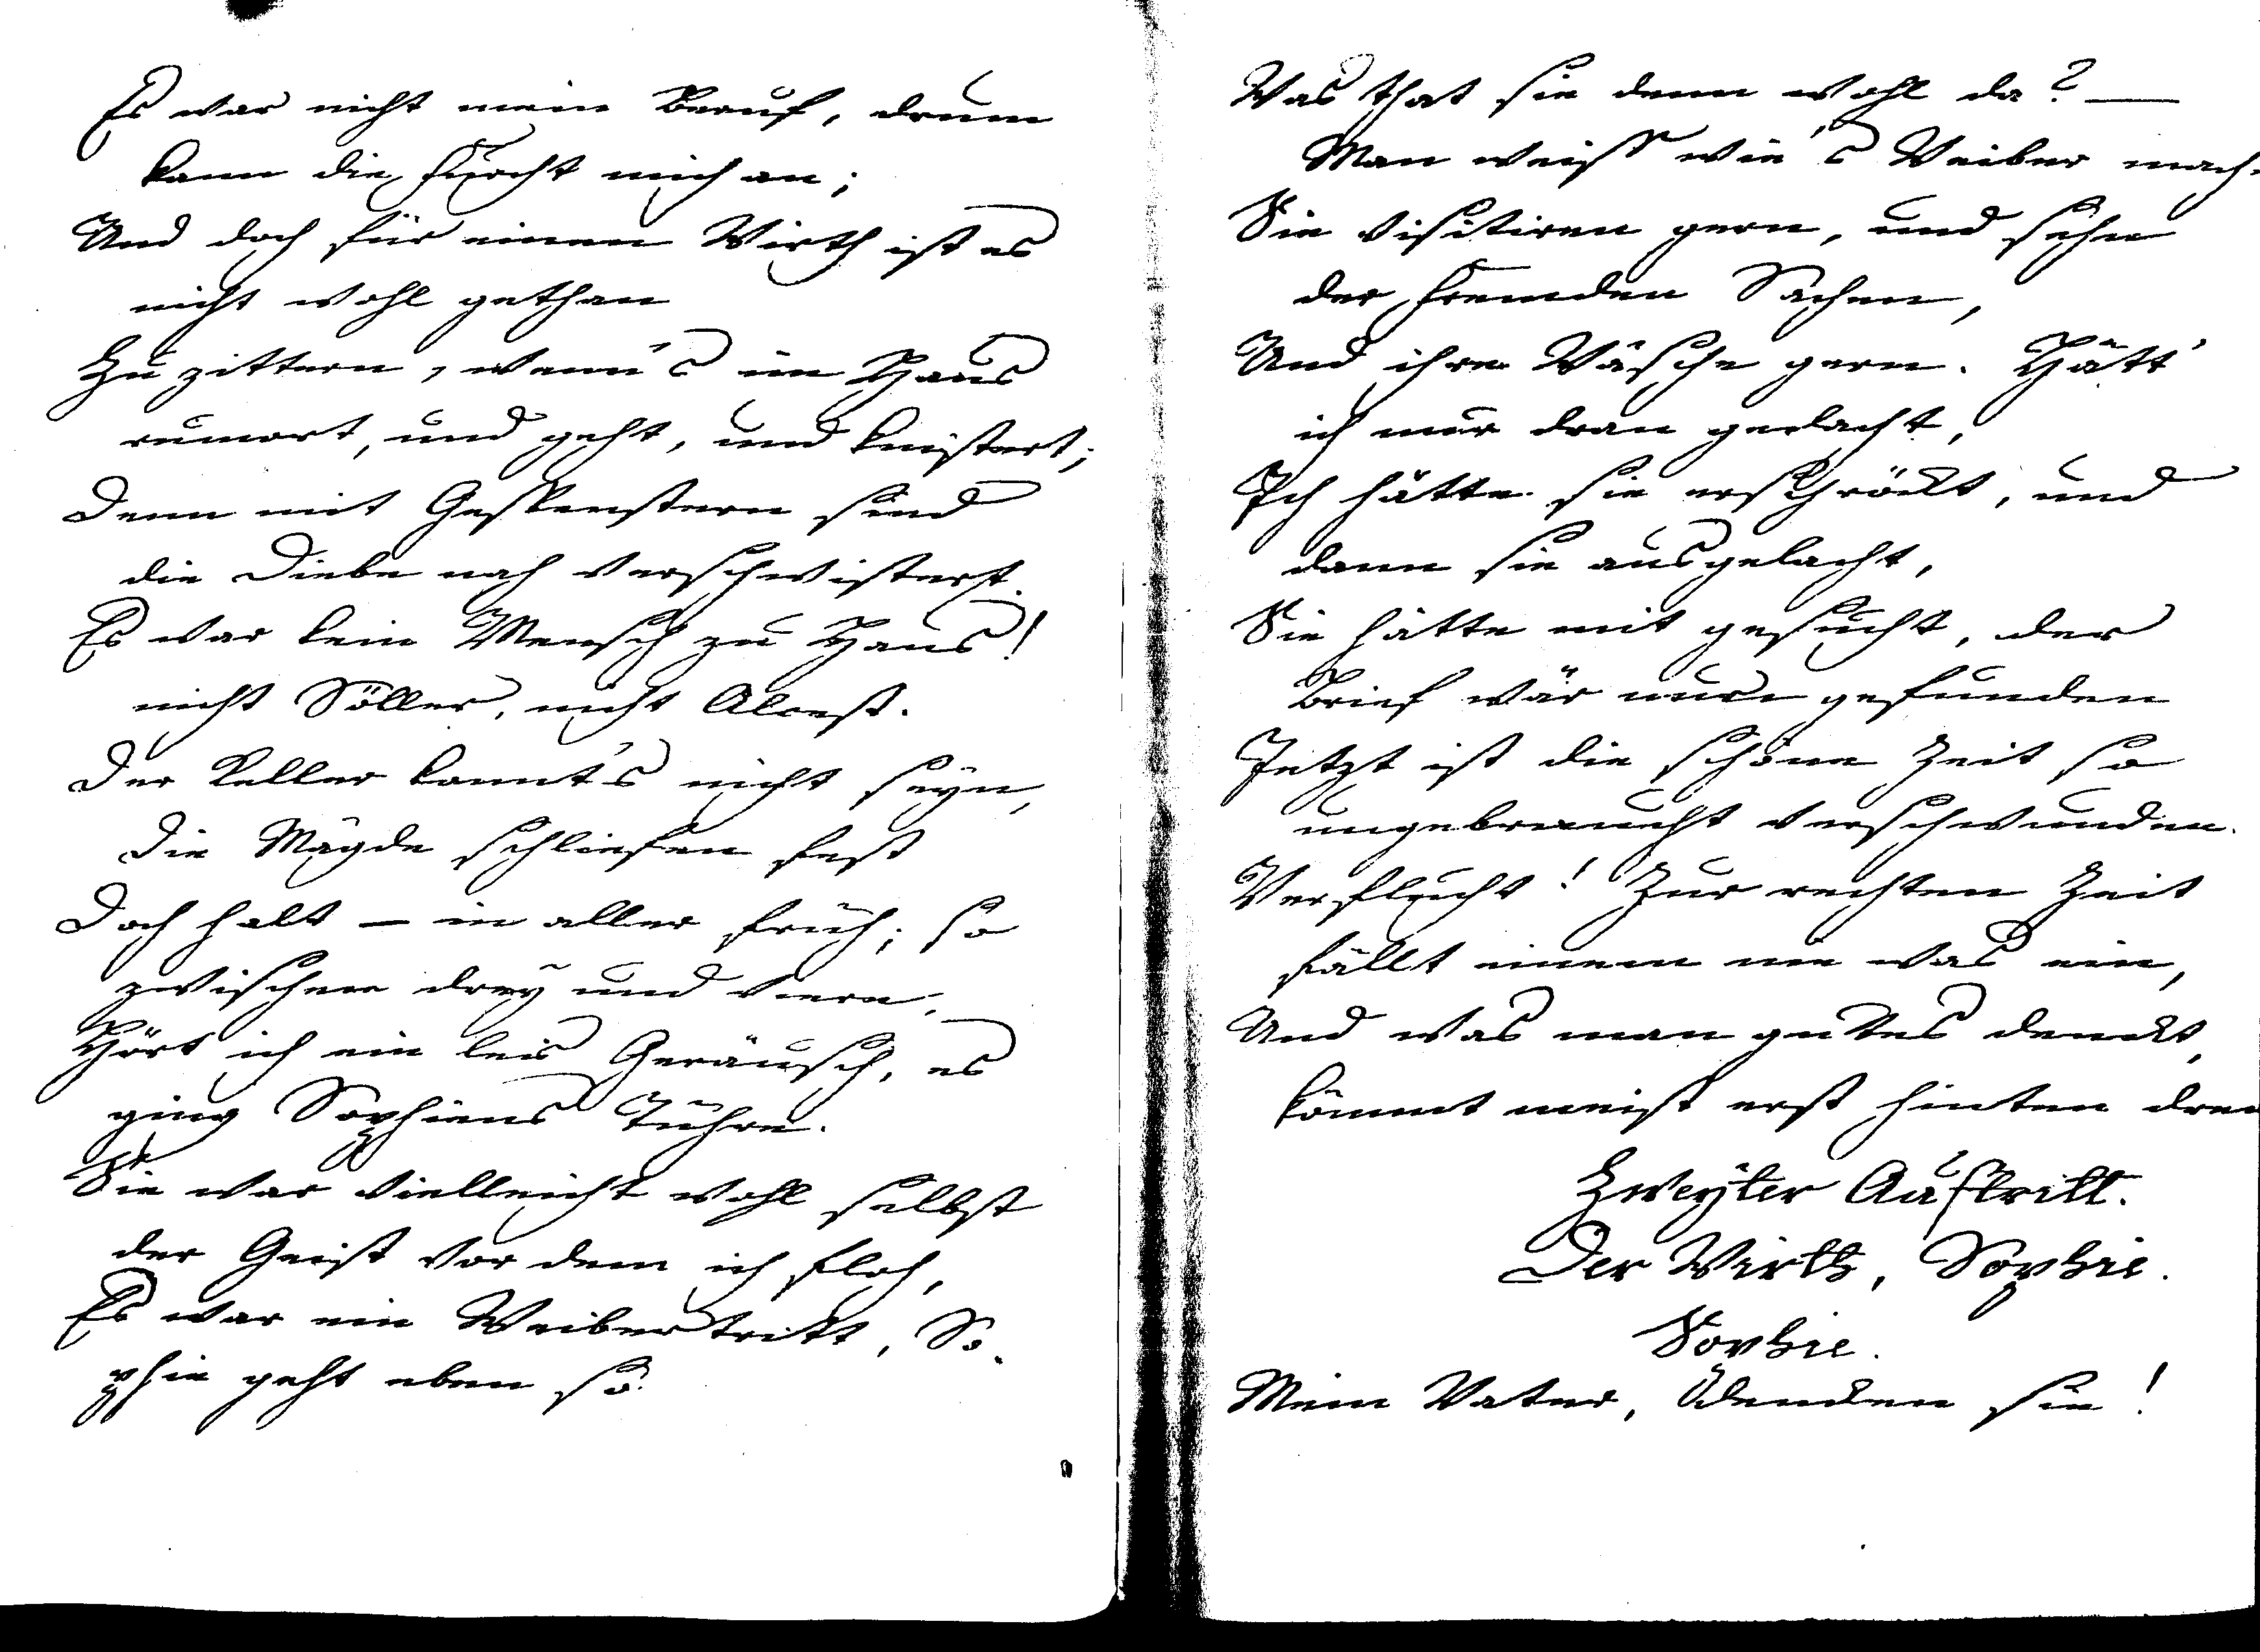 Es war nicht mein Beruf, drum
kam die Furcht mich an;
Und doch für einen Wirth ist es
nicht wohl gethan
Zu zittern, wenn's im Haus
rumort, und geht, und knistert;
Denn mit Gespenstern sind
die Diebe nah verschwistert.
Es war kein Mensch zu Haus!
nicht Söller, nicht Alcest.
Der Keller konnt's nicht seyn,
Die Mägde schliefen fest
Doch halt – in aller früh; so
zwischen drey und viere,
Hört ich ein leis Geräusch, es
ging Sophiens Tühre.
Sie war vielleicht wohl selbst
der Geist vor dem ich floh,
Es war ein Weibertritt, So-
phie geht eben so.
Was that sie denn wohl da? —
Man weiss wie's Weiber mach-
Sie visitiren gern, und sehn
der Fremden Sachen,
Und ihre Wäsche gern. Hätt'
ich nur dran gedacht,
Ich hätte sie erschröckt, und
dann sie ausgelacht,
Sie hätte mit gesucht, der
Brief wär nun gefunden
Jetzt ist die schöne Zeit so
ungebraucht verschwunden.
Verflucht! Zur rechten Zeit
fällt einem nie was ein,
Und was man gutes denckt,
kömmt meist erst hinten drein
Zweyter Auftritt.
Der Wirth, Sophie.
Sophie.
Mein Vater, dencken sie!